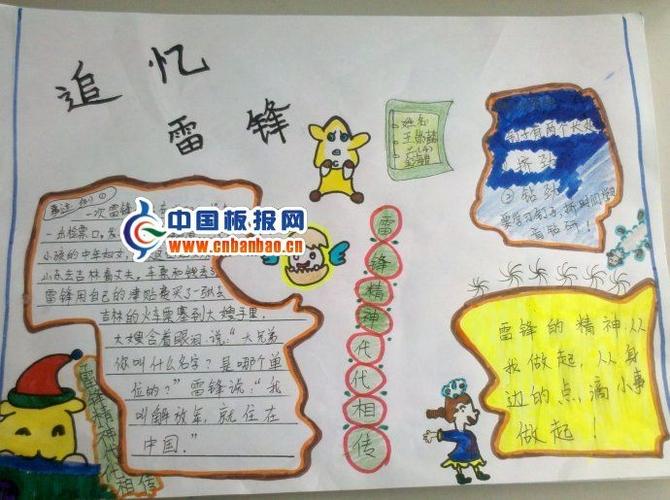 追忆
雷锋
姓名
王
事迹
一次雷锋
一出检票口,
小孩的中年妇女,
山东去吉林看丈夫,车票和钱丢
雷锋用自己的津贴费买了一张去
吉林的火车票塞到大嫂手里,
大嫂含着眼泪说:“大兄弟
你叫什么名字?是哪个单
位的?”雷锋说:“我
叫解放军,就住在
中国。”
中国板报网
www.cnbanbao.cn
雷锋精神代代相传
钉子有两个长处
挤劲
②钻劲
要学习钉子,挤时间学
雷锋的精神从
我做起,从身
边的点滴小事
做起!
雷锋精神代代相传